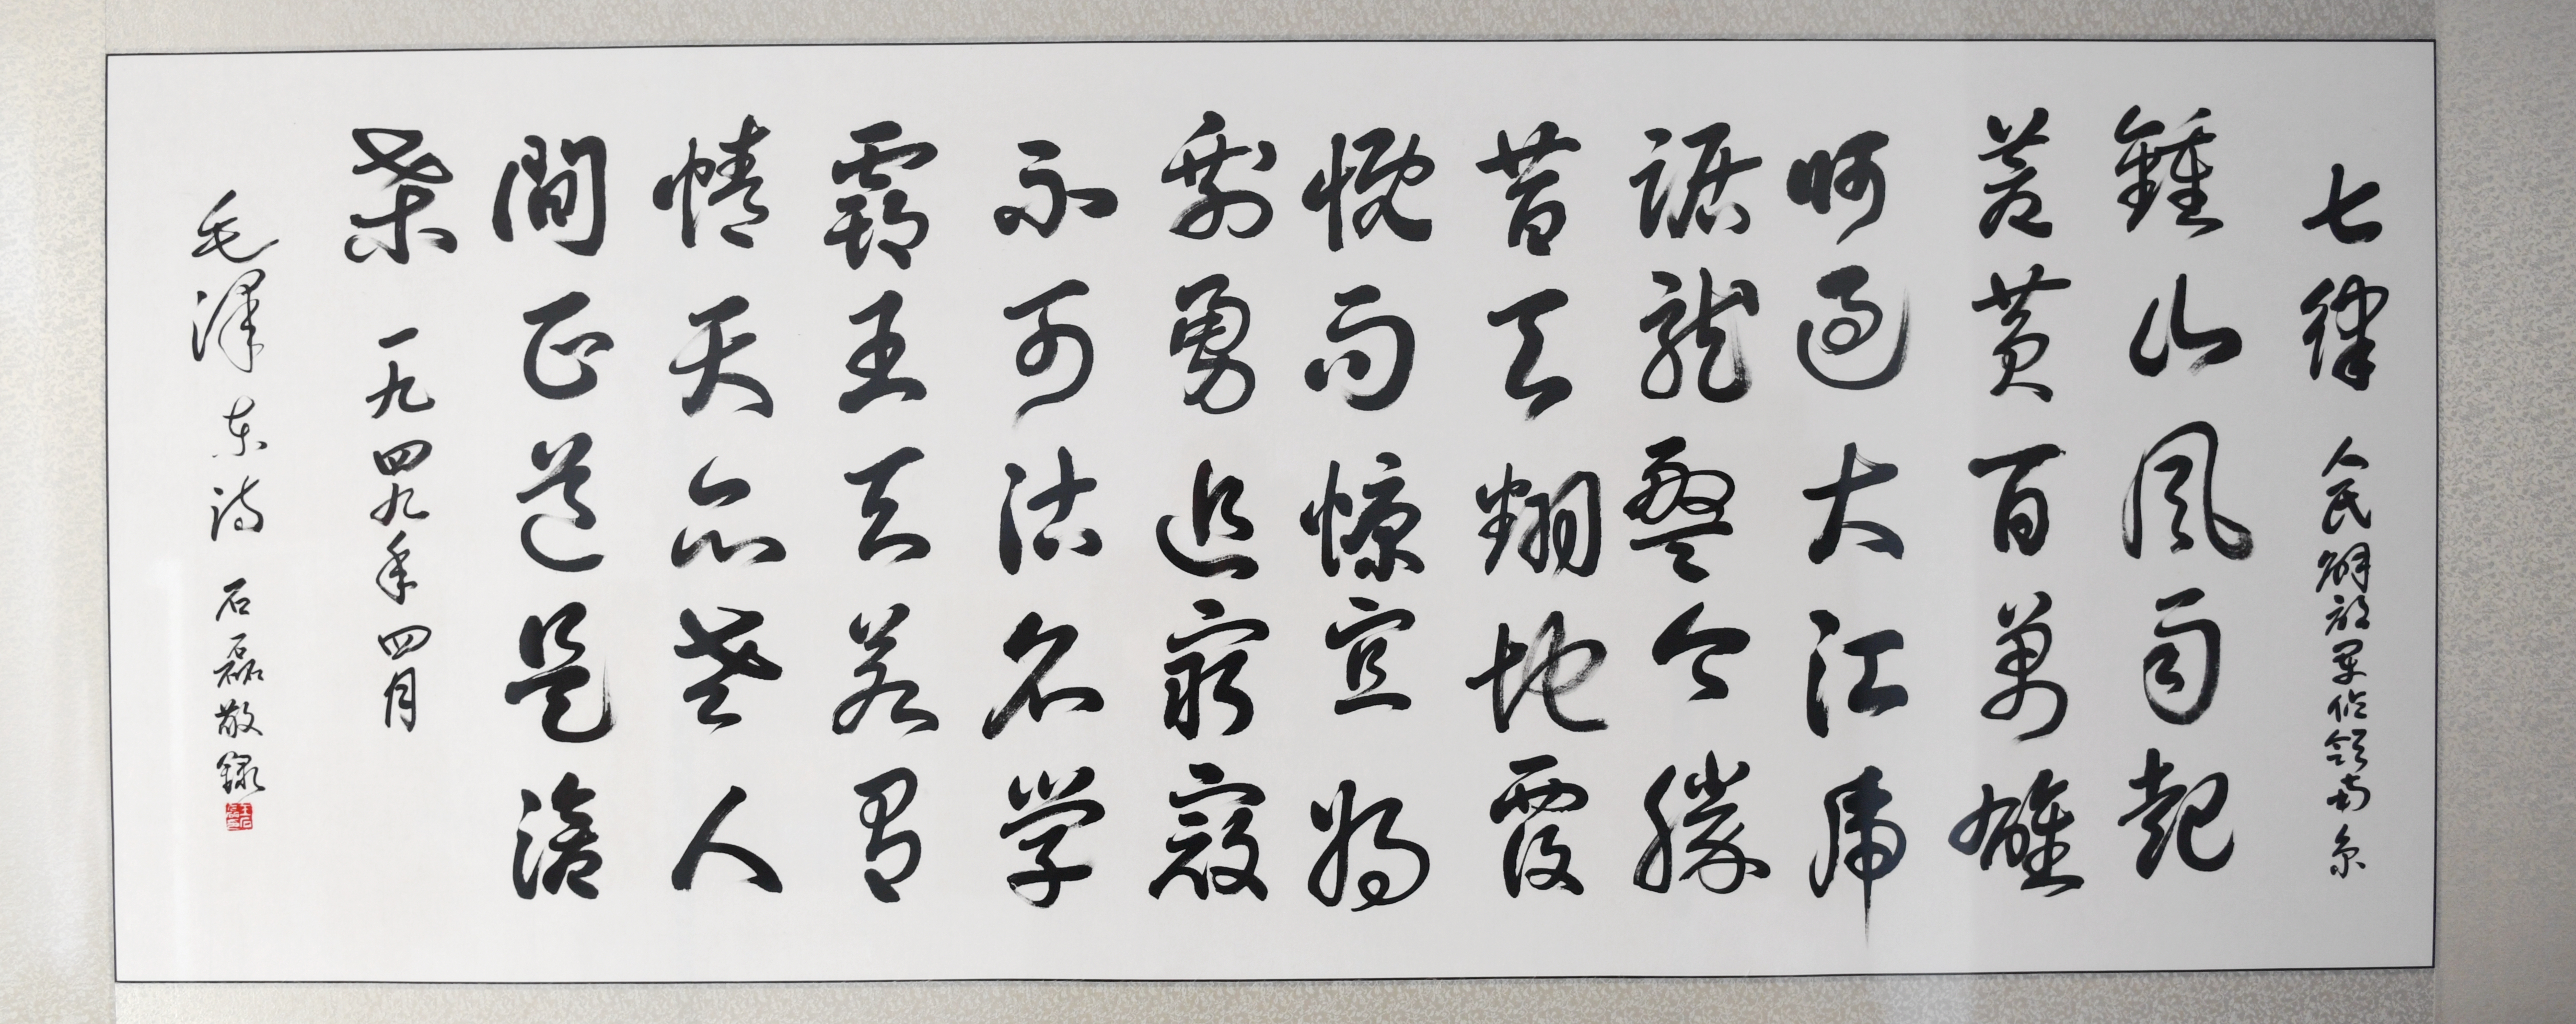 七律 人民解放軍佔領南京
鍾山風雨起
蒼黄百萬雄
师過大江虎
踞龍盤今勝
昔天翻地覆
慨而慷宜将
剩勇追窮寇
不可沽名学
霸王天若有
情天亦老人
間正道是滄
桑 一九四九年四月
毛澤东诗 石磊敬録